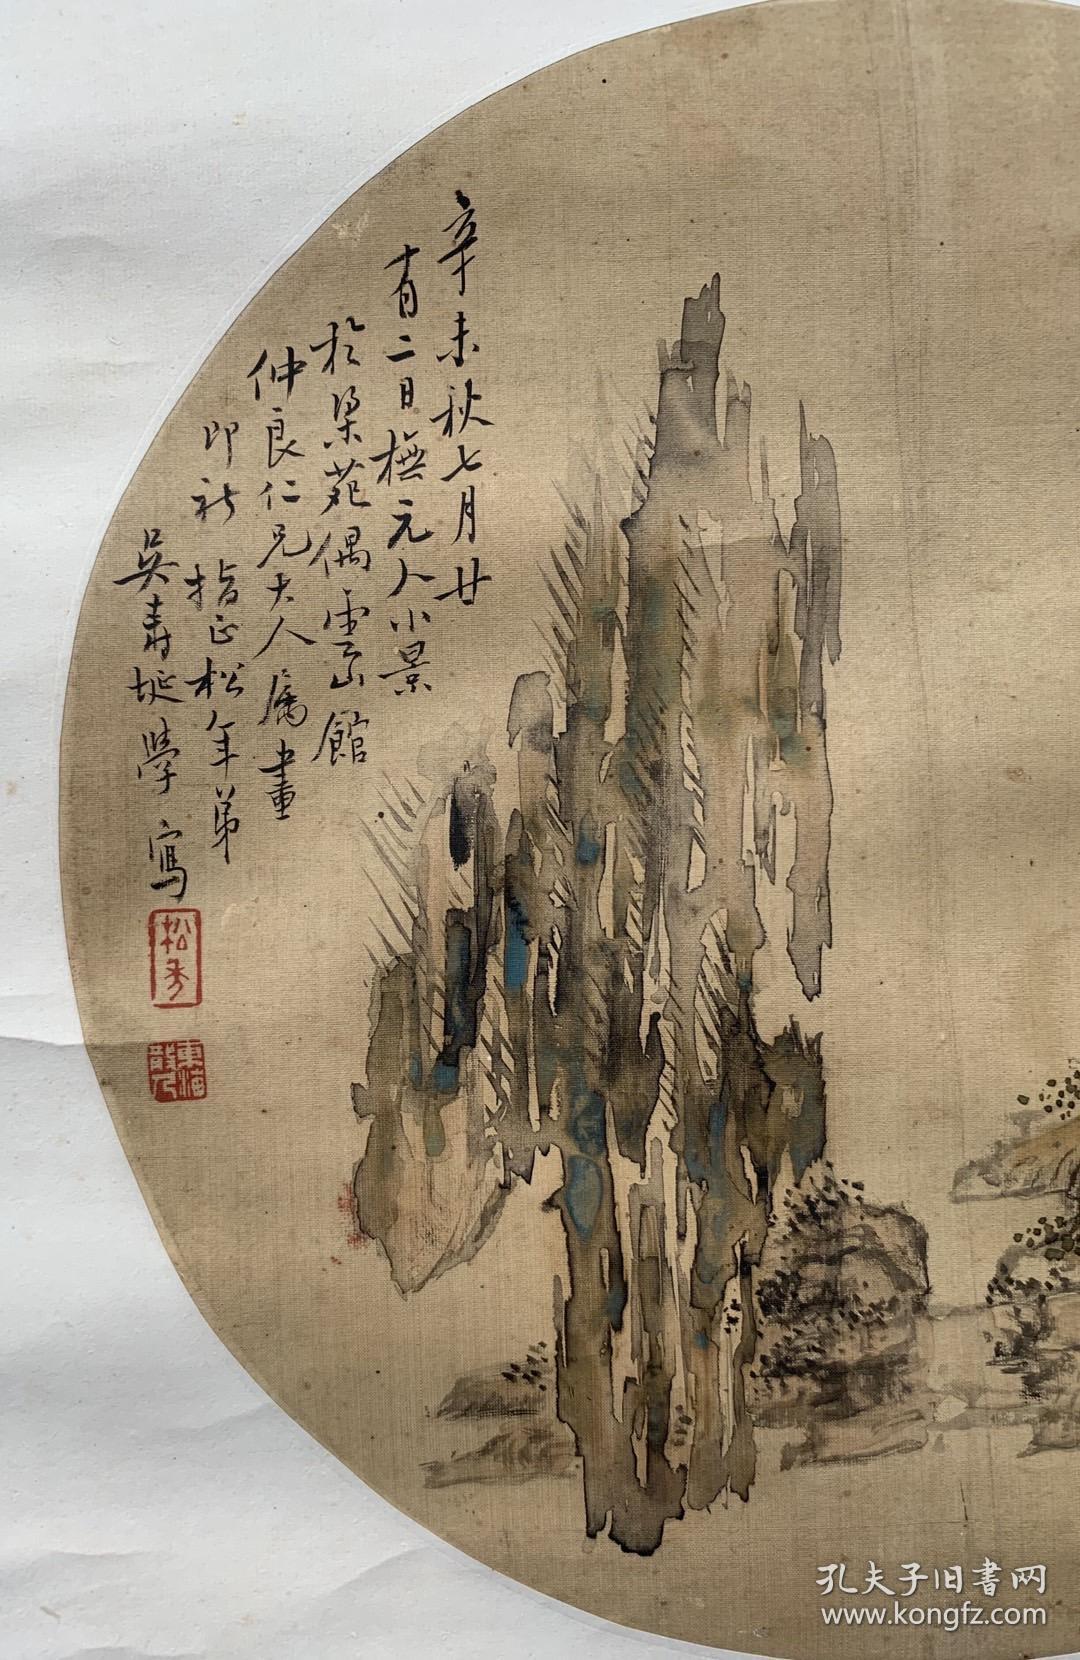 辛未秋七月廿
有二日橅元人小景
於梁苑偶雲館
仲良仁兄大人属畫
即祈 指正松年弟
吴壽埏學寫
松年
東海
孔夫子旧书网
www.kongfz.com